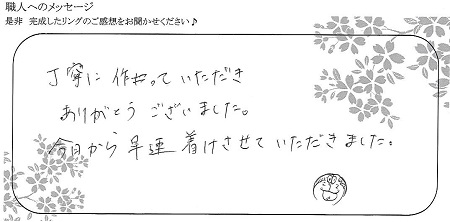 職人へのメッセージ
是非 完成したリングのご感想をお聞かせください♪
丁寧に 作って いただき
ありがとう ございました。
今日から 早速 着けさせて いただきました。